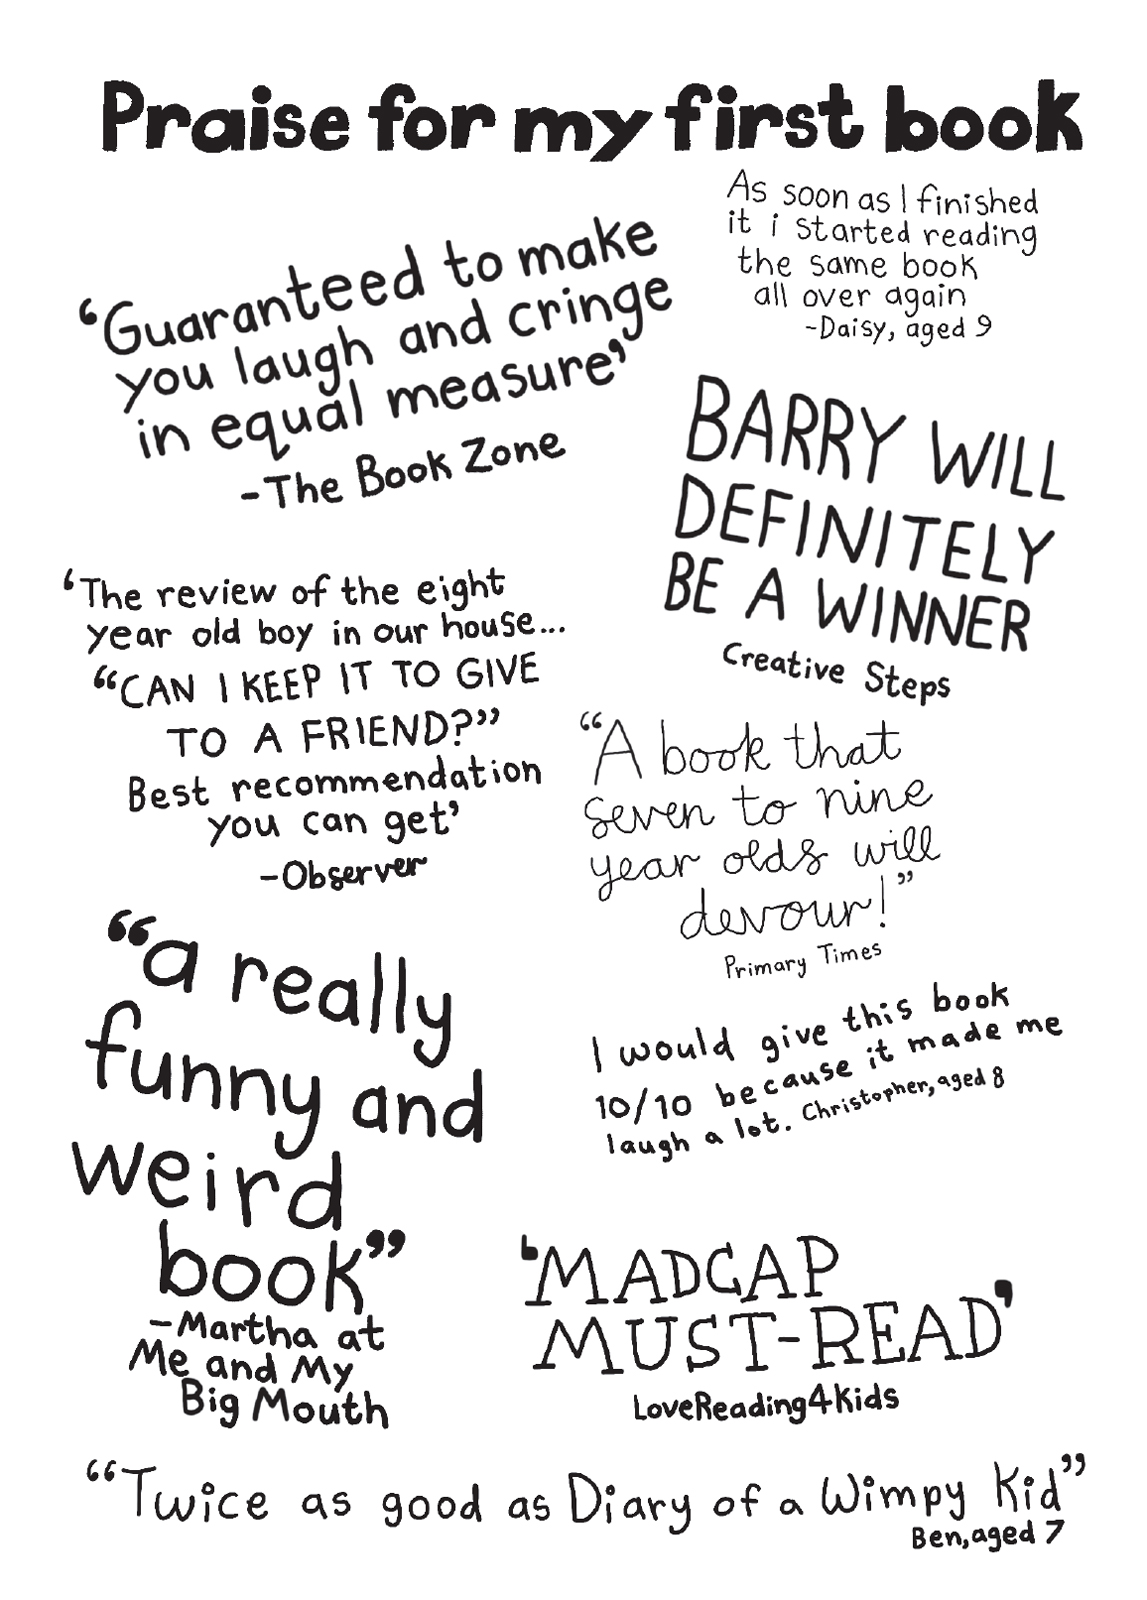 Praise for my first book
As soon as I finished
it i started reading
the same book
all over again
-Daisy, aged 9
‘Guaranteed to make
you laugh and cringe
in equal measure’
-The Book Zone
BARRY WILL
DEFINITELY
BE A WINNER
Creative Steps
‘The review of the eight
year old boy in our house...
“CAN I KEEP IT TO GIVE
TO A FRIEND?”
Best recommendation
you can get’
-Observer
“A book that
seven to nine
year olds will
devour!”
Primary Times
“a really
funny and
weird
book”
-Martha at
Me and My
Big Mouth
I would give this book
10/10 because it made me
laugh a lot. Christopher, aged 8
‘MADCAP
MUST-READ’
LoveReading4Kids
“Twice as good as Diary of a Wimpy Kid”
Ben, aged 7